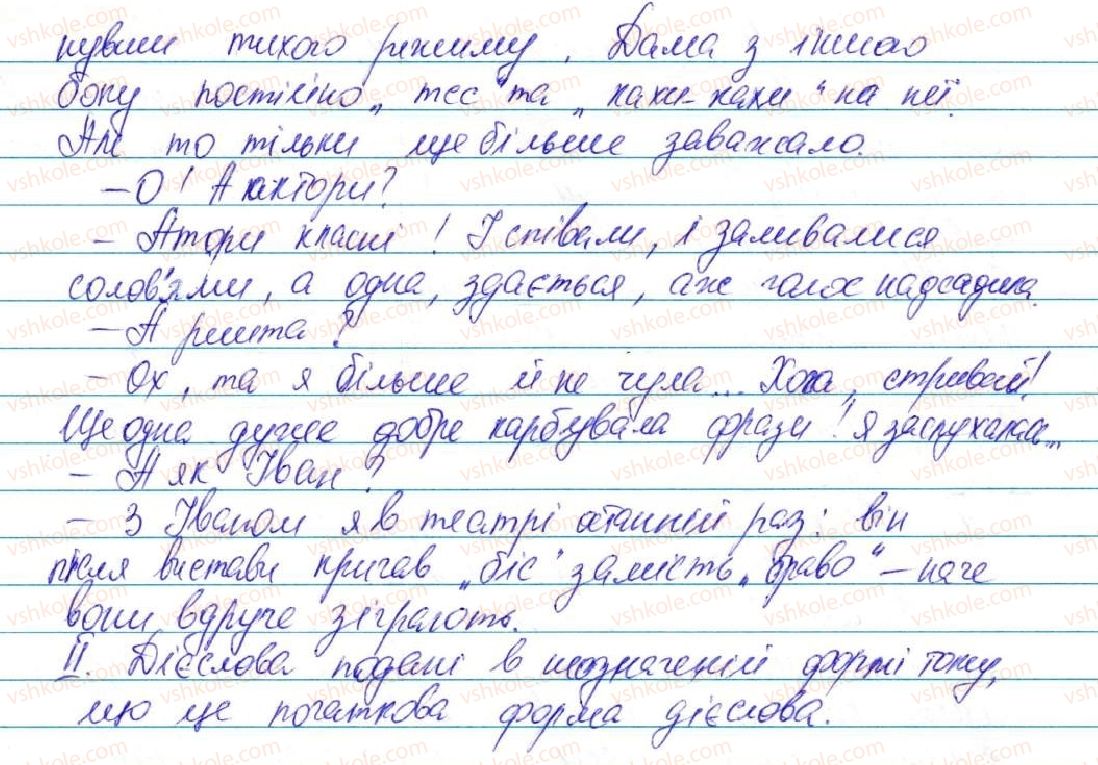 нувши тихого режиму. Дама з іншого
боку постійно „тсс" та „кахи-кахи" на неї.
Але то тільки ще більше заважало.
– О! А актори?
– Атори класні! І співали, і заливалися
солов'ями, а одна, здається, аж голос надсадила.
– А решта?
– Ох, та я більше й не чула... Хоча, стривай!
Ще одна дуже добре карбувала фрази! Я заслухалась...
– А як Іван?
– З Іваном я в театрі останній раз: він
після вистави кричав „біс" замість „браво" – наче
вони вдруге зіграють.
ІІ. Дієслова подані в неозначеній формі тому,
що це початкова форма дієслова.